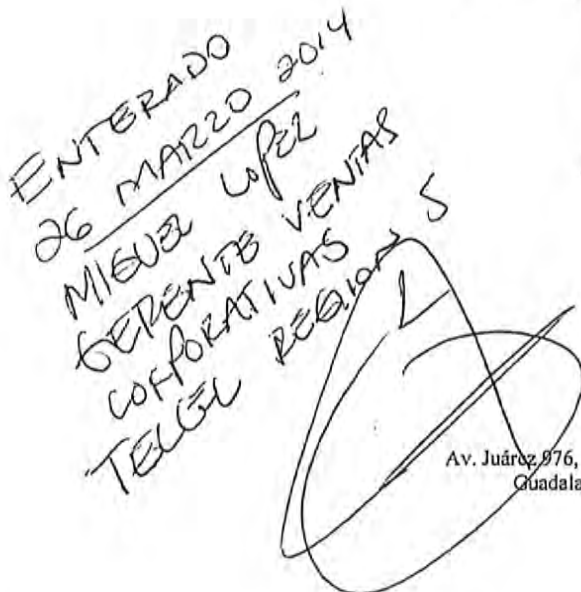 ENTERADO
26 MARZO 2014
MIGUEL LOPEZ
GERENTE VENTAS
CORPORATIVAS
TELCEL REGION 5
Av. Juárez 976,
Guadala